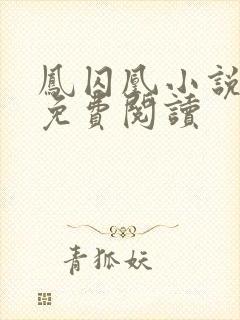 鳳囚凰小說
免費閱讀
青狐妖